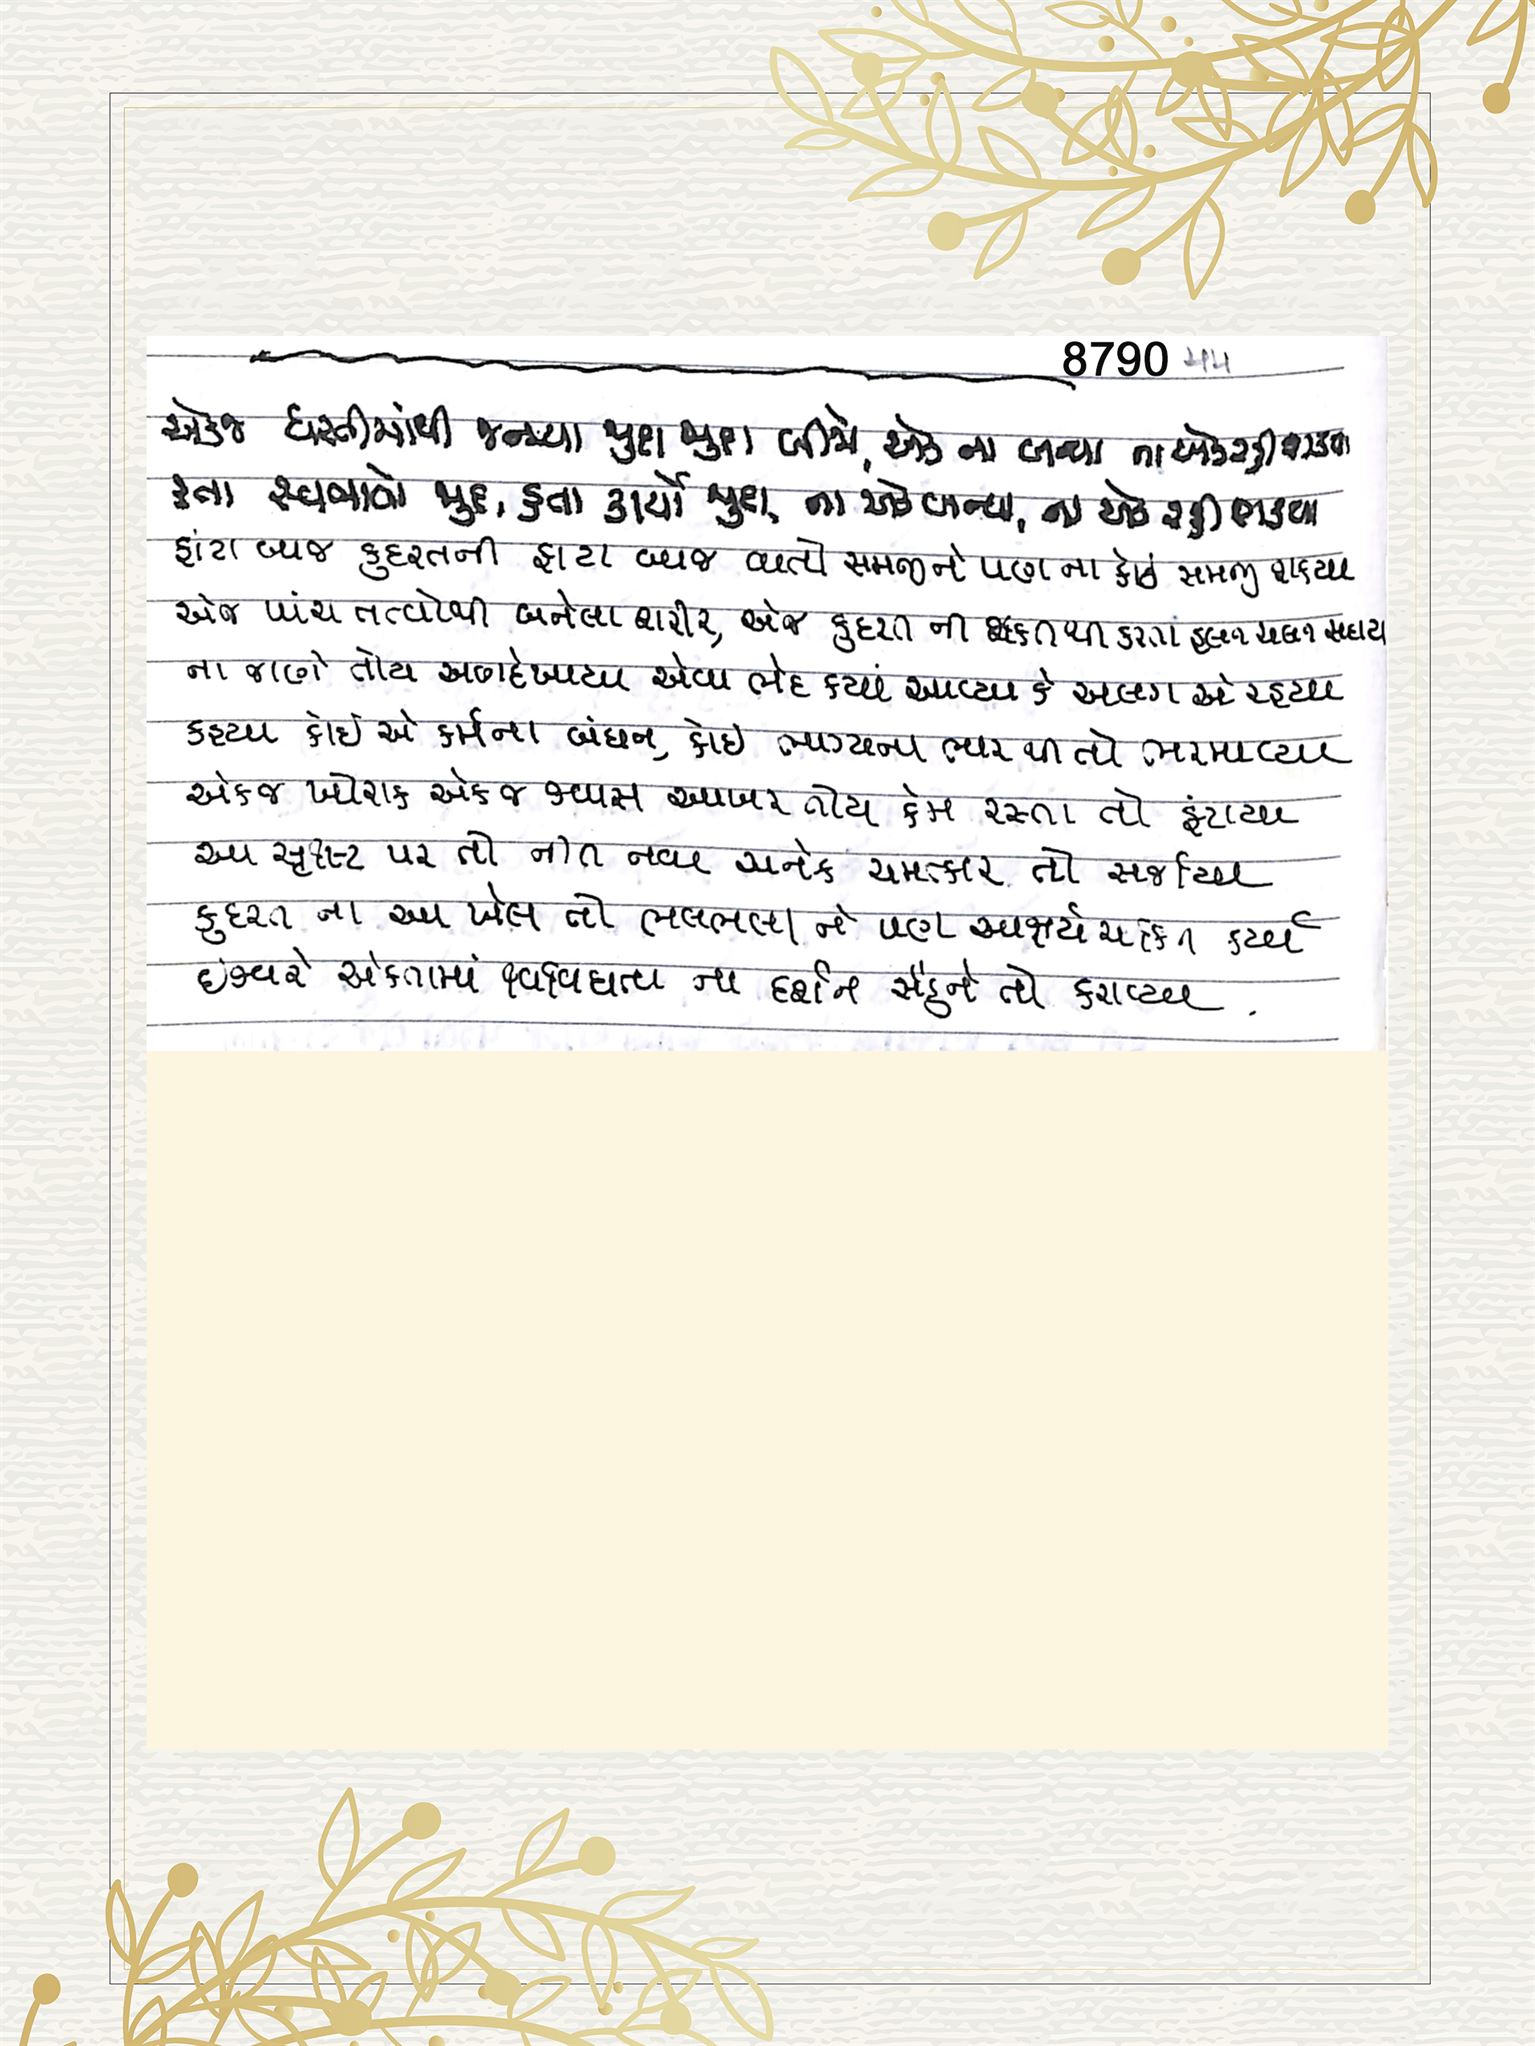 8790
એકજ ધરતીમાંથી જનમ્યા જુદા જુદા બીજો, એક ના બન્યા ના એક રહી શકયા
હતા સ્વભાવો જુદા, હતા કાર્યો જુદા, ના એક બન્યા, ના એક રહી શકયા
ફાંટા બાજ કુદરતની ફાટા બાજ વાતો સમજીને પણ ના કોઈ સમજી શકયા
એજ પાંચ તત્વોથી બનેલા શરીર, એજ કુદરત ની શકિત થી કરતાં હલન ચલન સદાય
ના જાણે તોય અણદેખાયા એવા ભેદ કયાં આવ્યા કે અલગ એ રહ્યા
કહ્યા કોઈ એ કર્મના બંધન, કોઈ ભાગ્યના ભાર થી તો ભરમાવ્યા
એકજ ખોરાક એકજ શ્વાસ આખર તોય કેમ રસ્તા તો ફંટાયા
આ સૃષ્ટિ પર તો નીત નવા અનેક ચમત્કાર તો સર્જાયા
કુદરત ના આ ખેલ તો ભલભલા ને પણ આશ્ચર્ય ચકિત કર્યા
ઈશ્વરે એકતામાં વિવિધતા ના દર્શન સૌને તો કરાવ્યા .